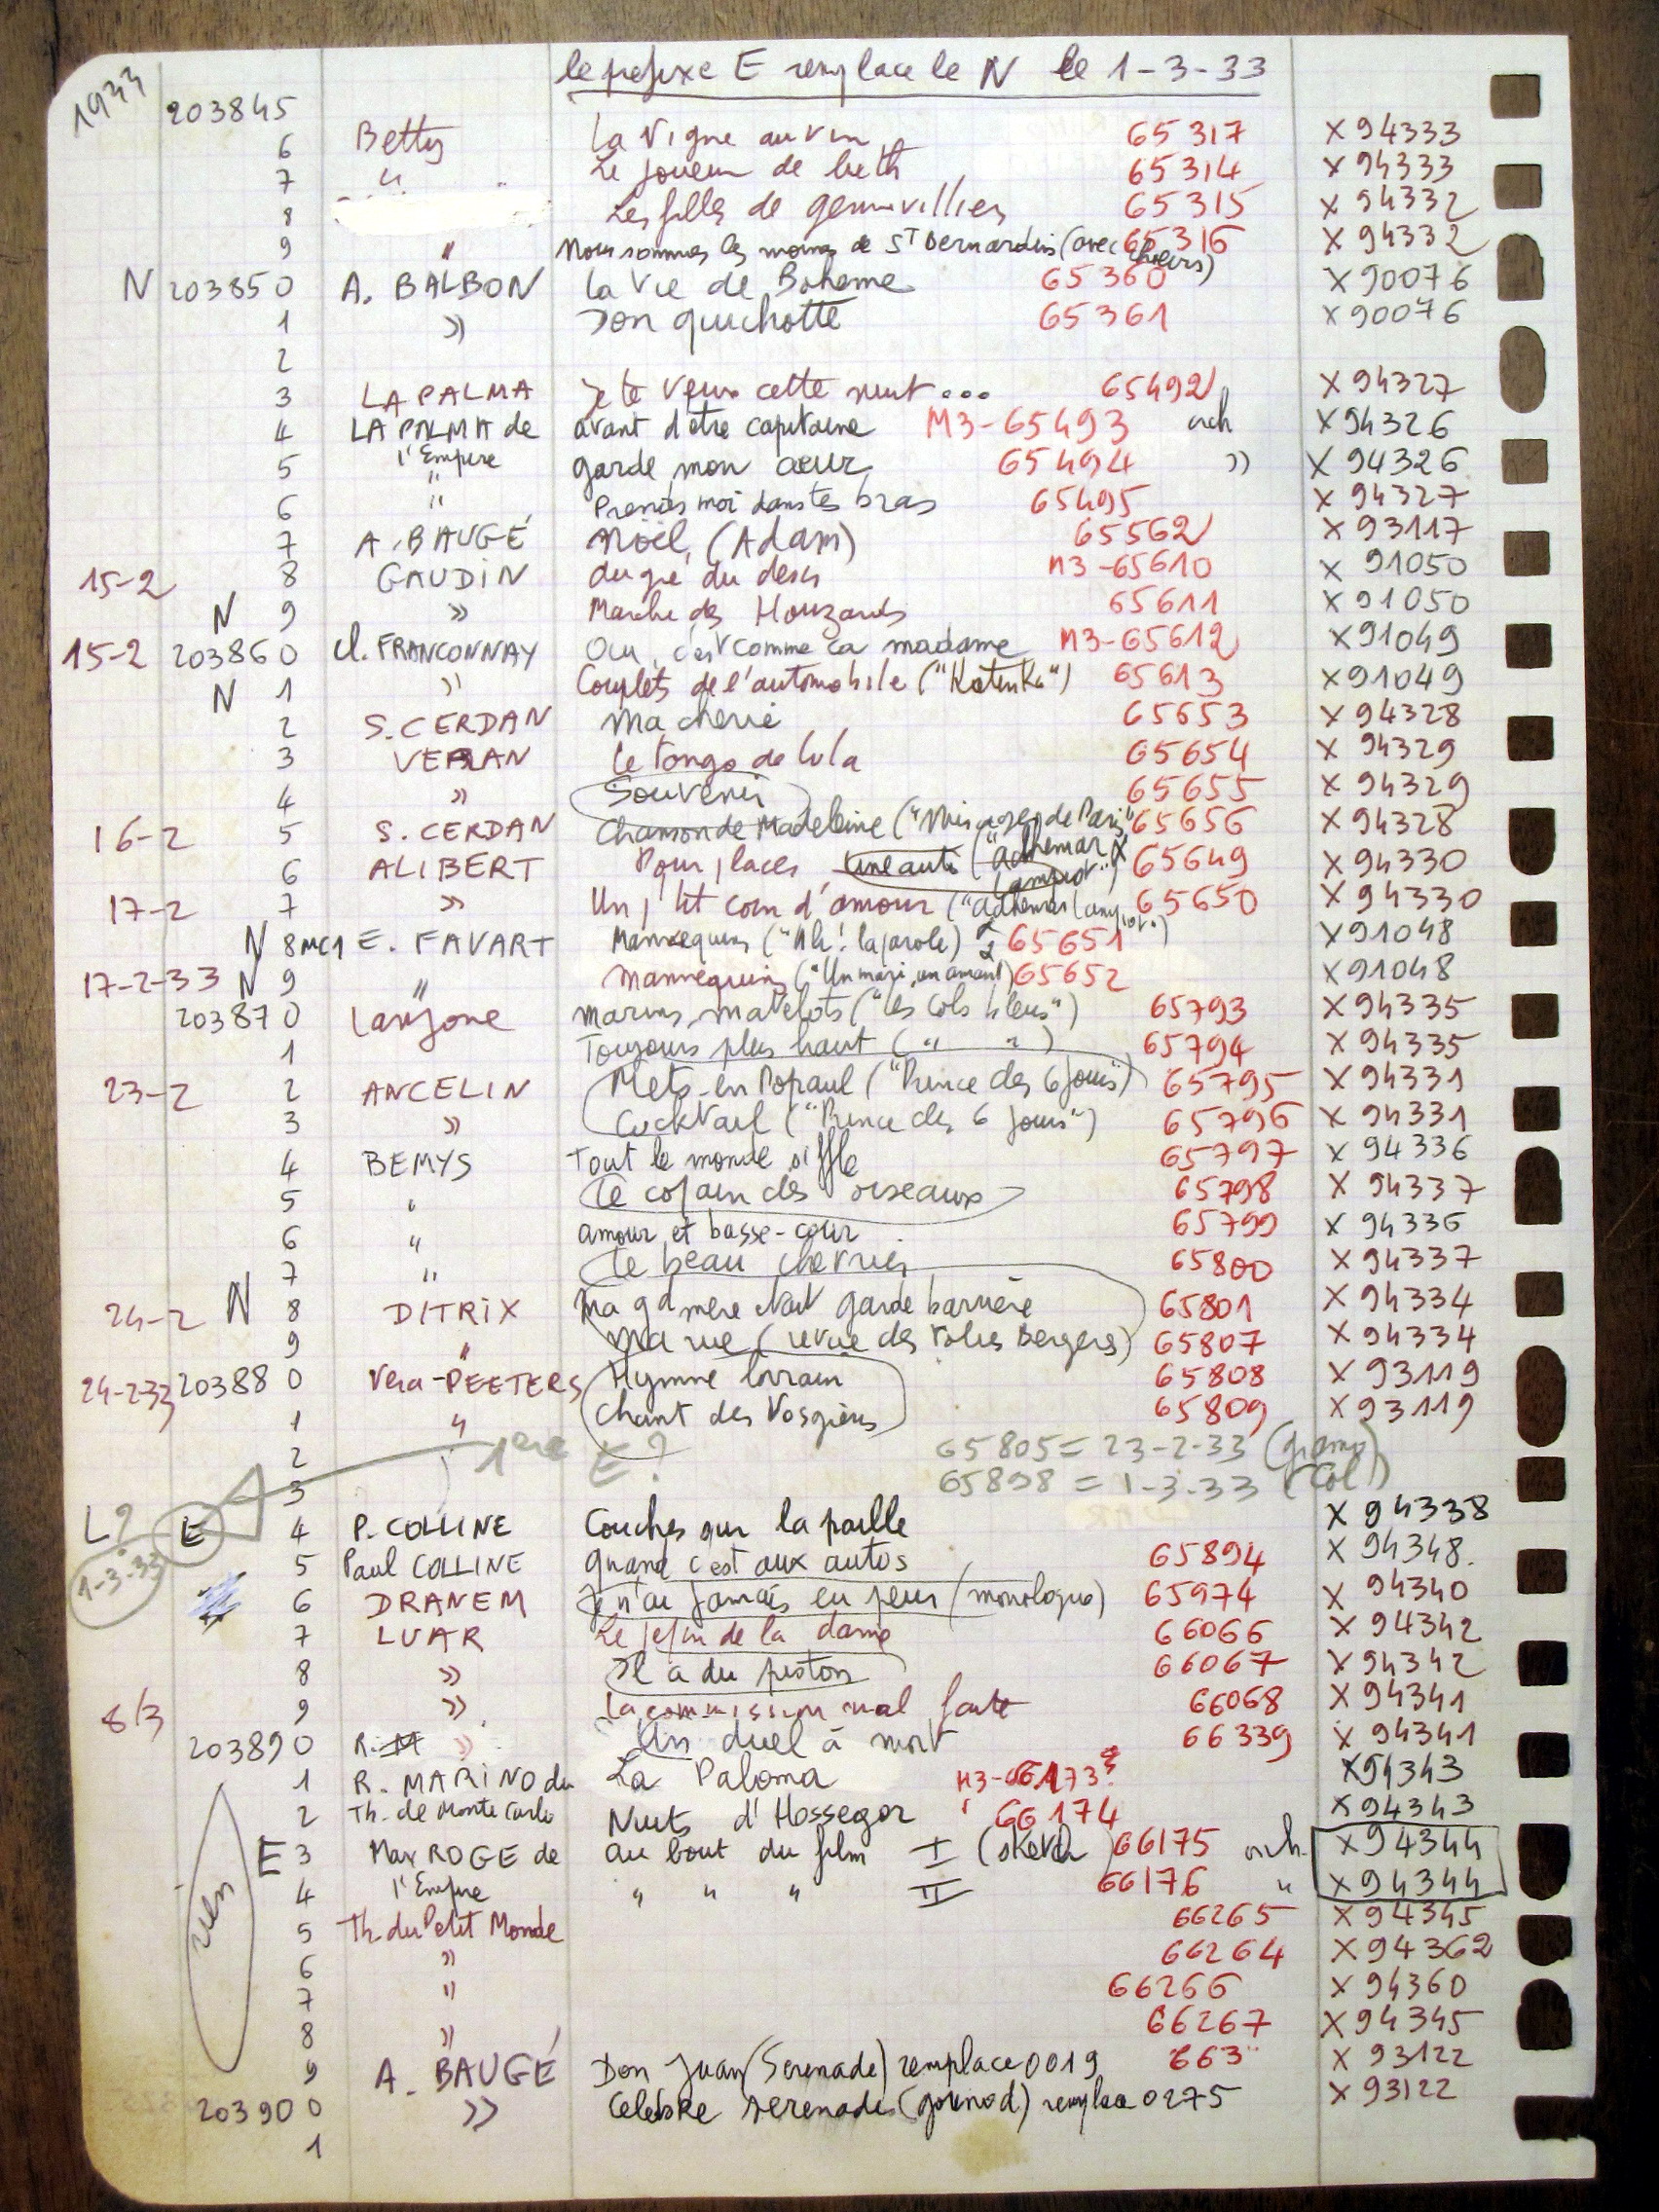 le prefixe E remplace le N le 1-3-33
1933 203845
6 Betty La Vigne au vin 65317 X 94333
7 " Le joueur de luth 65314 X 94333
8 Les filles de gennevilliers 65315 X 94332
9 " Nous sommes les moines de ST Bernardin (avec choeurs) 65316 X 94332
N 203850 A. BALBON La Vie de Boheme 65360 X 90076
1 » Don quichotte 65361 X 90076
2
3 LA PALMA Je te veux cette nuit... 65492 X 94327
4 LA PALMA de avant d'etre capitaine M3-65493 orch X 94326
5 l'Empire " garde mon coeur 65494 » X 94326
6 " Prends moi dans tes bras 65495 X 94327
7 A. BAUGÉ Noël (Adam) 65562 X 93117
15-2 8 GAUDIN M3-65610 X 91050
N 9 » Marche des Houzards 65611 X 91050
15-2 203860 Cl. FRANCONNAY Oui, c'est comme ça madame M3-65612 X 91049
N 1 » Couplets de l'automobile ("Katinka") 65613 X 91049
2 S. CERDAN Ma cherie 65653 X 94328
3 VERAN Le tango de Lola 65654 X 94329
4 » Souvenir 65655 X 94329
16-2 5 S. CERDAN Chanson de Madeleine (" de Paris" 65656 X 94328
6 ALIBERT Pour placer une auto ("adhemar Lampiot") 65649 X 94330
17-2 7 » Un p'tit coin d'amour ("adhemar Lampiot") 65650 X 94330
N 8 MC1 E. FAVART Mannequins ("Ah! la parole) 2 65651 X 91048
17-2-33 N 9 " Mannequins ("Un mari, un amant) 65652 X 91048
203870 Lanjone marins, matelots ("les cols bleus") 65793 X 94335
1 Toujours plus haut (" ") 65794 X 94335
23-2 2 ANCELIN Mets-en Popaul ("Prince des 6 jours") 65795 X 94331
3 » Cocktail ("Prince des 6 jours") 65796 X 94331
4 BEMYS Tout le monde siffle 65797 X 94336
5 " Le copain des oiseaux 65798 X 94337
6 " amour et basse-cour 65799 X 94336
7 " Le beau chevrier 65800 X 94337
24-2 N 8 DITRIX Ma gd mere etait garde barrière 65801 X 94334
9 " Ma rue (revue des Folies Bergers) 65807 X 94334
24-2-33 203880 Vera-PEETERS Hymne lorrain 65808 X 93119
1 " Chant des Vosgiens 65809 X 93119
2 1ere E? 65805 = 23-2-33 (gramo)
3 65898 = 1-3-33 (Col)
L? E 4 P. COLLINE Couches sur la paille X 94338
1-3-33 5 Paul COLLINE quand c'est aux autos 65894 X 94348.
6 DRANEM Je n'ai jamais eu peur (monologue) 65974 X 94340
7 LUAR Le pepin de la dame 66066 X 94342
8 » Il a du piston 66067 X 94342
8/3 9 » La commission mal faite 66068 X 94341
203890 R. M » Un duel à mort 66339 X 94341
1 R. MARINO du La Paloma M3-66173? X 94343
2 Th. de Monte Carlo Nuits d'Hossegor 66174 X 94343
E 3 Max ROGE de au bout du film I (sketch) 66175 orch. X 94344
4 l'Empire " " " II 66176 " X 94344
5 Th. du Petit Monde 66265 X 94345
6 » 66264 X 94362
7 " 66266 X 94360
8 » 66267 X 94345
rien
9 A. BAUGÉ Don Juan (Serenade) remplace 0019 663 X 93122
203900 » Celebre serenade (gounod) remplace 0275 X 93122
1